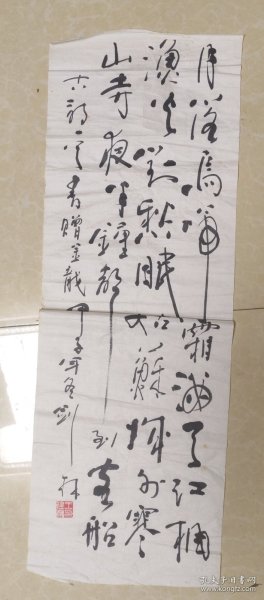 月落烏啼霜滿天江楓
漁火對愁眠姑蘇城外寒
山寺夜半鐘聲到客船
書贈金龍 甲子年冬
孔夫子旧书网